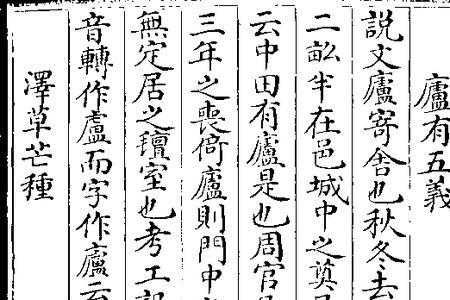 廬有五義
說文廬寄舍也秋冬去
二畝半在邑城中之奠
云中田有廬是也周官
三年之喪倚廬則門中
無定居之氊室也考工記
音轉作盧而字作廬云
澤草芒種